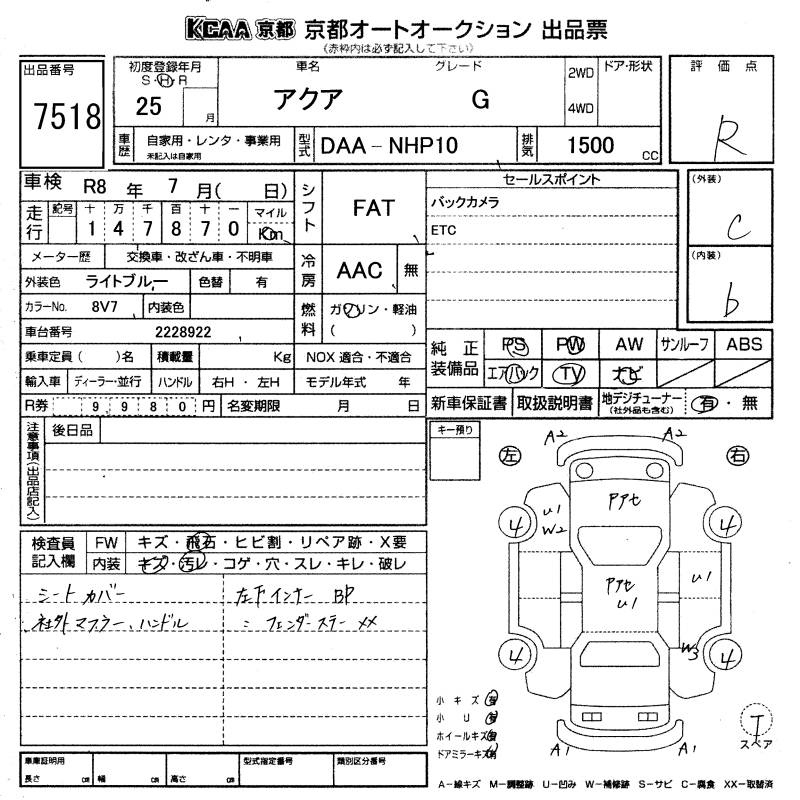 KCAA 京都 京都オートオークション 出品票
(赤枠内は必ず記入して下さい)
出品番号
7518
初度登録年月
S・H・R
25 月
車名
アクア
グレード
G
2WD
4WD
ドア・形状
評価点
R
車歴
自家用・レンタ・事業用
未記入は自家用
型式
DAA-NHP10
排気
1500 CC
車検 R8 年 7 月( 日)
走行
記号 十 万 千 百 十 一
1 4 7 8 7 0
マイル
Km
メーター歴 交換車・改ざん車・不明車
外装色 ライトブルー 色替 有
カラーNo. 8V7 内装色
車台番号 2228922
乗車定員( )名 積載量 Kg NOX 適合・不適合
輸入車 ディーラー・並行 ハンドル 右H・左H モデル年式 年
R券 9980円 名変期限 月 日
シフト FAT
冷房 AAC 無
燃料 ガソリン・軽油
( )
セールスポイント
バックカメラ
ETC
(外装)
C
(内装)
b
純正装備品
PS PW AW サンルーフ ABS
エアバック TV ナビ
新車保証書 取扱説明書 地デジチューナー(社外品も含む) 有・無
注意事項(出品店記入)
後日品
キー預り
検査員記入欄
FW キズ・飛石・ヒビ割・リペア跡・X要
内装 キズ・汚レ・コゲ・穴・スレ・キレ・破レ
シートカバー
社外マフラー、ハンドル
左下インナー BP
〃 フェンダーステー XX
左 右
A2 A2
アアセ
U1
W2
4 4
アアセ
U1
U1
W3
4 4
A1 A1
小キズ 有
小U 有
ホイールキズ 有
ドアミラーキズ 有
T
スペア
車庫証明用
長さ cm 幅 cm 高さ cm
型式指定番号
類別区分番号
A-線キズ M-調整跡 U-凹み W-補修跡 S-サビ C-腐食 XX-取替済